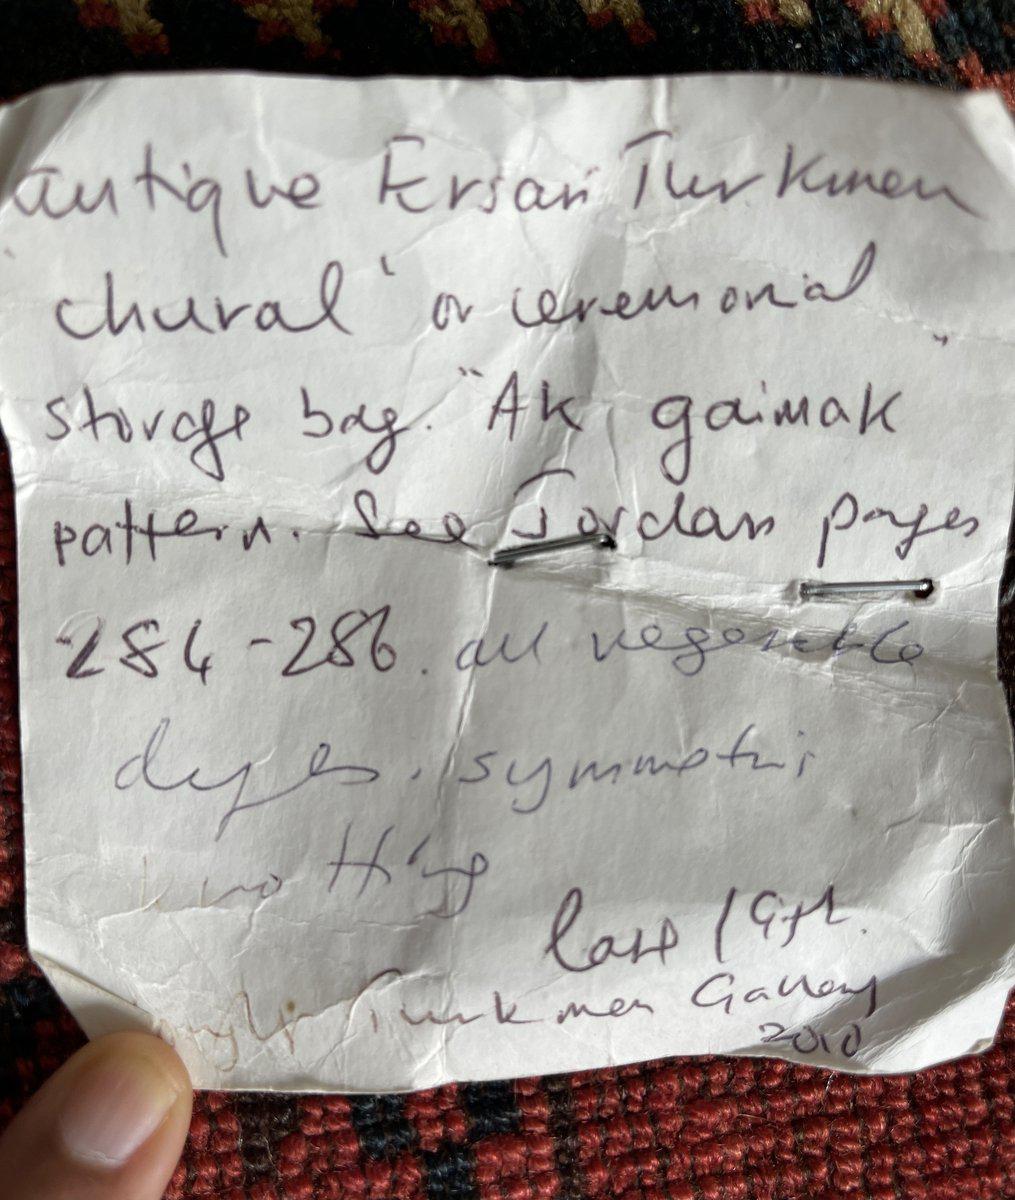 antique Ersari Turkmen
'chuval' or ceremonial
storage bag. "Ak gaimak"
pattern. See Jordan pages
284-286. all vegetable
dyes. symmetric
knotting
late 19th.
Turkmen Gallery
2010